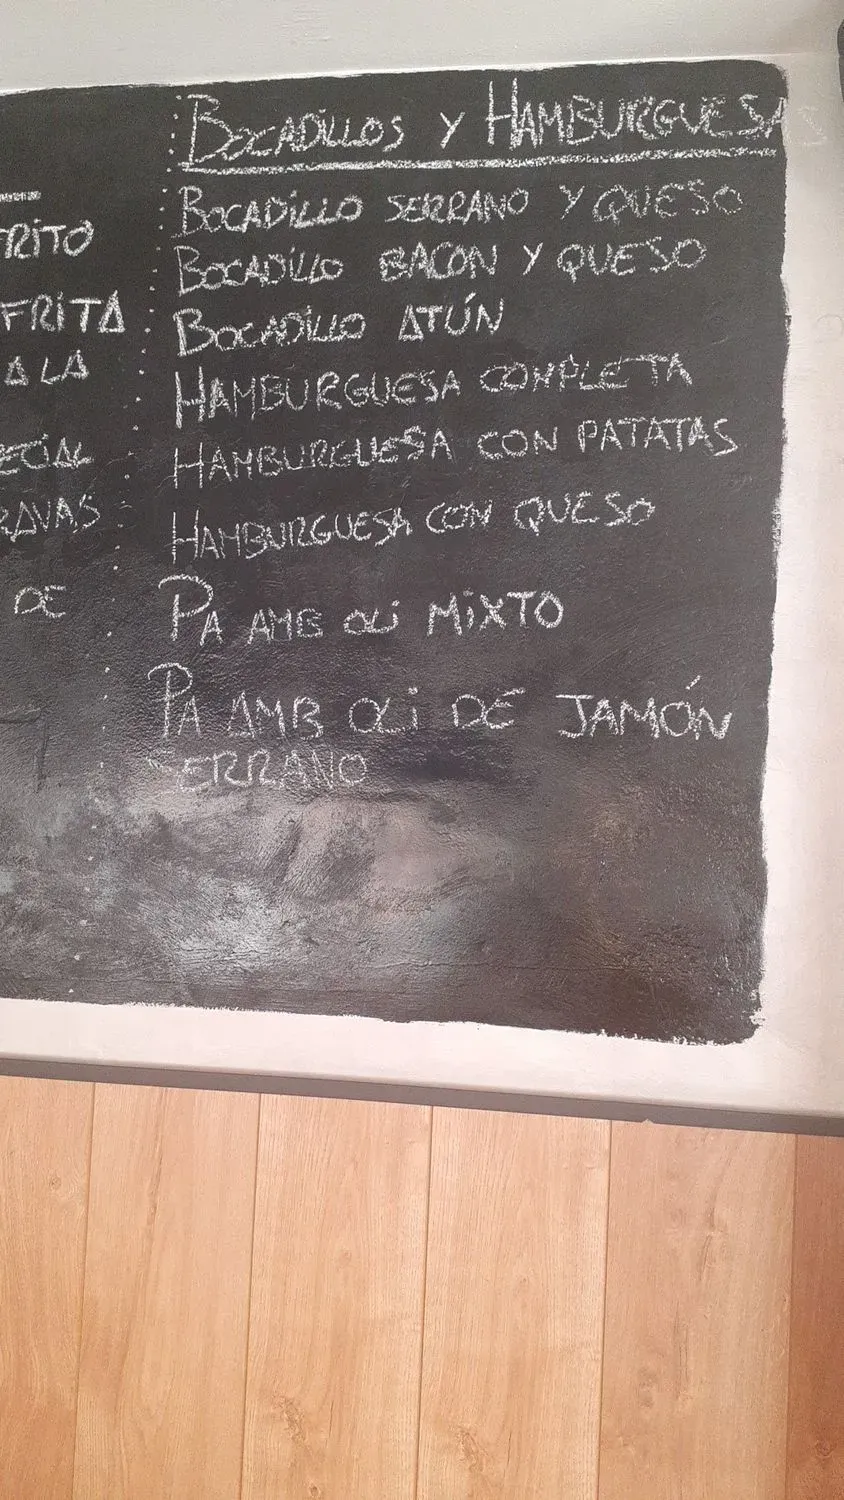 FRITO
FRITA
A LA
ECIAL
RAVAS
DE
BOCADILLOS Y HAMBURGUESAS
BOCADILLO SERRANO Y QUESO
BOCADILLO BACON Y QUESO
BOCADILLO ATÚN
HAMBURGUESA COMPLETA
HAMBURGUESA CON PATATAS
HAMBURGUESA CON QUESO
PA AMB OLI MIXTO
PA AMB OLI DE JAMÓN
SERRANO